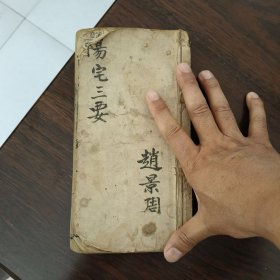 陽宅三要
趙景周